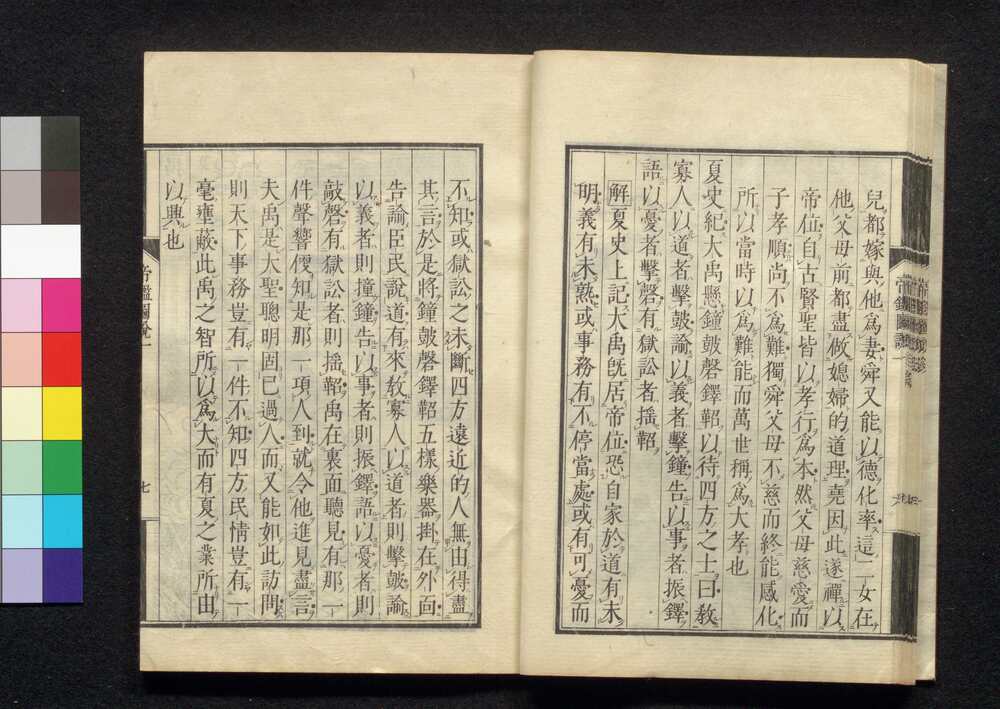 兒都嫁與他爲妻舜又能以德化率這二女在
他父母前都盡做媳婦的道理堯因此遂禪以
帝位自古賢聖皆以孝行爲本然父母慈愛而
子孝順尚不爲難獨舜父母不慈而終能感化
所以當時以爲難能而萬世稱爲大孝也
夏史紀大禹懸鐘鼓磬鐸鞀以待四方之士曰教
寡人以道者擊鼓諭以義者擊鐘告以事者振鐸
語以憂者擊磬有獄訟者揺鞀
解夏史上記大禹既居帝位恐自家於道有未
明義有未熟或事務有不停當處或有可憂而
不知或獄訟之未斷四方遠近的人無由得盡
其言於是將鐘鼓磬鐸鞀五樣樂器掛在外面
告諭臣民說道有來教寡人以道者則擊鼓諭
以義者則撞鐘告以事者則振鐸語以憂者則
敲磬有獄訟者則揺鞀禹在裏面聽見有那一
件聲響便知是那一項人到就令他進見盡言
夫禹是大聖聰明固已過人而又能如此訪問
則天下事務豈有一件不知四方民情豈有一
毫壅蔽此禹之智所以爲大而有夏之業所由
以興也
帝鑑圖說一
七